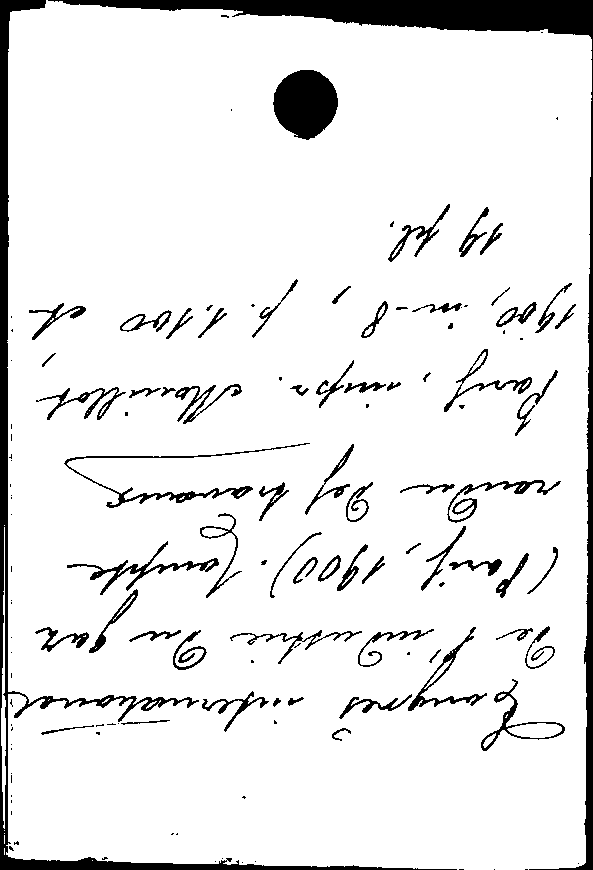 Congrès international
de l'industrie du gaz
(Paris, 1900). Compte
rendu des travaux
Paris, impr. Mouillot,
1900, in-8, p. 1.100 et
19 pl.